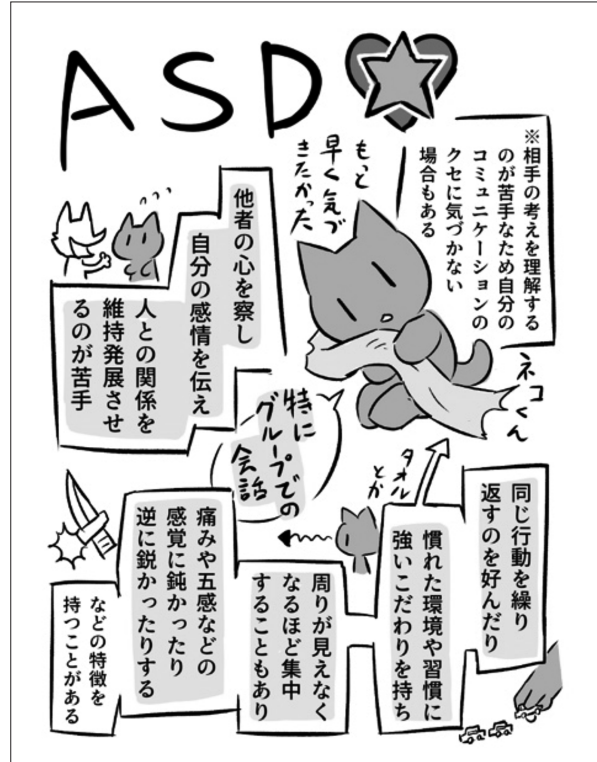 ASD
※相手の考えを理解する
のが苦手なため自分の
コミュニケーションの
クセに気づかない
場合もある
もっと
早く気づ
きたかった
ネコくん
他者の心を察し
自分の感情を伝え
人との関係を
維持発展させ
るのが苦手
特に
グループでの
会話
同じ行動を繰り
返すのを好んだり
タオル
とか
慣れた環境や習慣に
強いこだわりを持ち
周りが見えなく
なるほど集中
することもあり
痛みや五感などの
感覚に鈍かったり
逆に鋭かったりする
などの特徴を
持つことがある